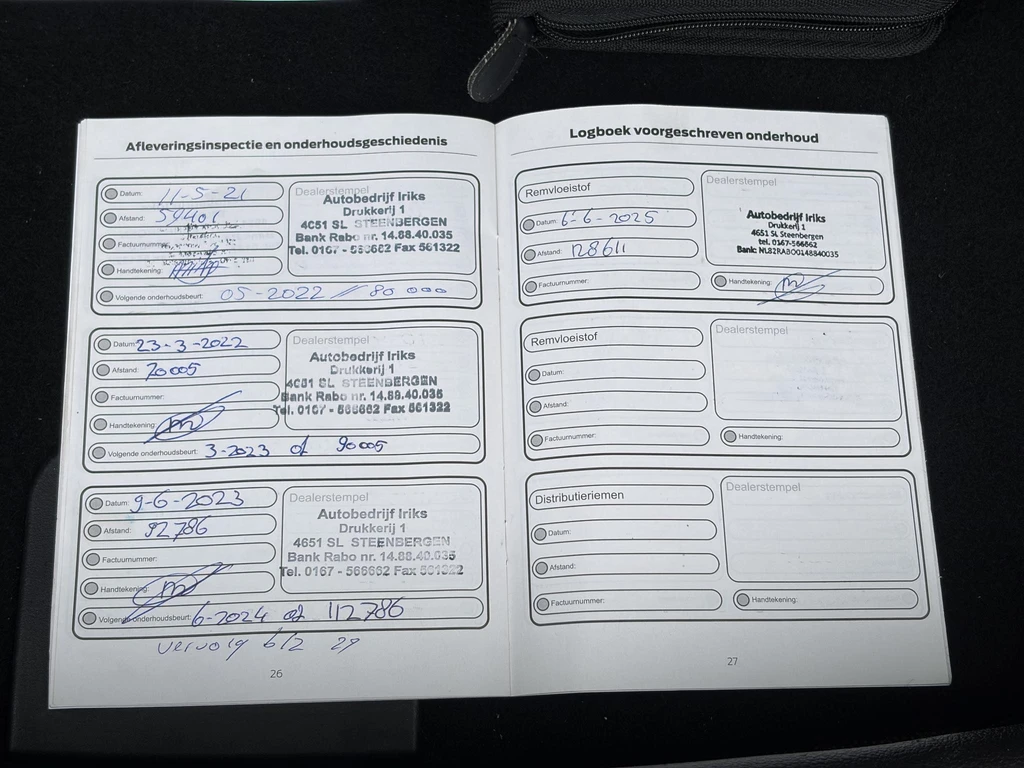 Afleveringsinspectie en onderhoudsgeschiedenis
Datum: 11-5-21
Afstand: 59401
Factuurnummer:
Handtekening:
Volgende onderhoudsbeurt: 05-2022 // 80 000
Dealerstempel
Autobedrijf Iriks
Drukkerij 1
4651 SL STEENBERGEN
Bank Rabo nr. 14.88.40.035
Tel. 0167 - 566662 Fax 561322
Datum: 23-3-2022
Afstand: 70005
Factuurnummer:
Handtekening:
Volgende onderhoudsbeurt: 3-2023 of 90005
Dealerstempel
Autobedrijf Iriks
Drukkerij 1
4651 SL STEENBERGEN
Bank Rabo nr. 14.88.40.035
Tel. 0167 - 566662 Fax 561322
Datum: 9-6-2023
Afstand: 92786
Factuurnummer:
Handtekening:
Volgende onderhoudsbeurt: 6-2024 of 112786
Dealerstempel
Autobedrijf Iriks
Drukkerij 1
4651 SL STEENBERGEN
Bank Rabo nr. 14.88.40.035
Tel. 0167 - 566662 Fax 561322
vervolg blz 29
26
Logboek voorgeschreven onderhoud
Remvloeistof
Datum: 6-6-2025
Afstand: 128611
Factuurnummer:
Dealerstempel
Autobedrijf Iriks
Drukkerij 1
4651 SL Steenbergen
tel. 0167-566662
Bank: NL82RABO0148840035
Handtekening:
Remvloeistof
Datum:
Afstand:
Factuurnummer:
Dealerstempel
Handtekening:
Distributieriemen
Datum:
Afstand:
Factuurnummer:
Dealerstempel
Handtekening:
27